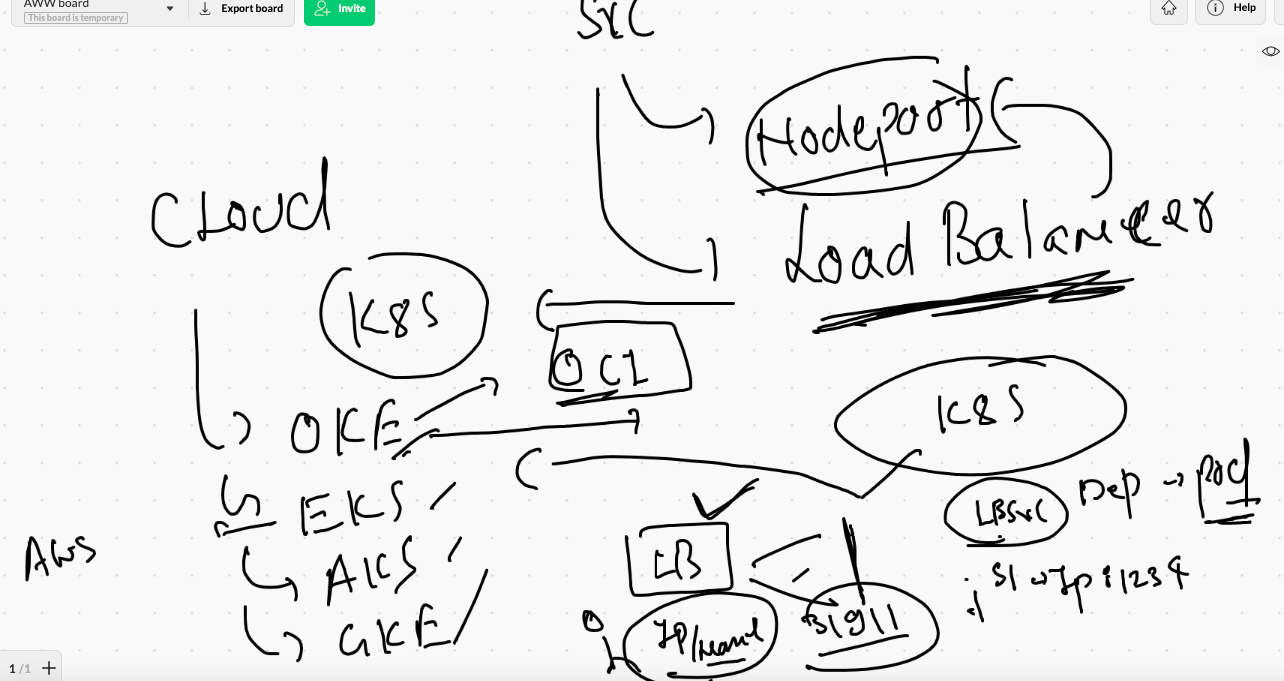 AWW board
This board is temporary
Export board
Invite
Help
SVC
Nodeport
Load Balancer
CLOUD
K8S
OCI
OKE
K8S
EKS
AWS
AKS
GKE
LBSVC
Dep → pod
LB
IP/name
1/1 +